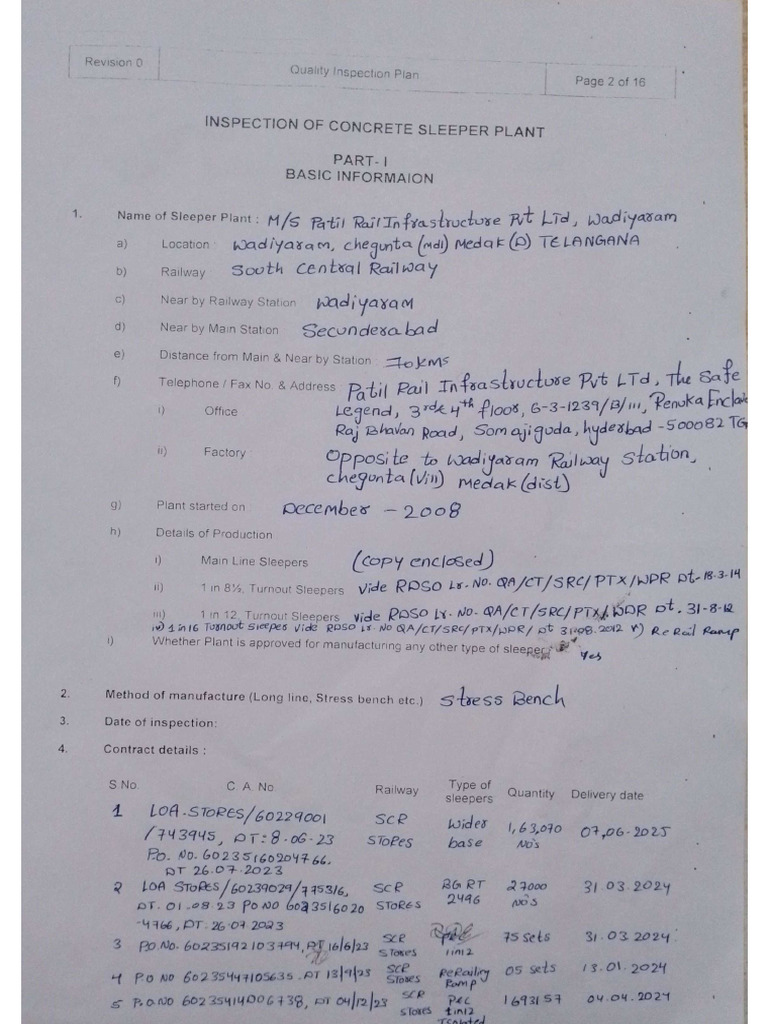 Revision 0 Quality Inspection Plan Page 2 of 16
INSPECTION OF CONCRETE SLEEPER PLANT
PART- I
BASIC INFORMAION
1. Name of Sleeper Plant : M/S Patil Rail Infrastructure Pvt LTd, Wadiyaram
a) Location Wadiyaram, chegunta (mdl) Medak (D) TELANGANA
b) Railway South Central Railway
c) Near by Railway Station Wadiyaram
d) Near by Main Station Secunderabad
e) Distance from Main & Near by Station 70KMS
f) Telephone / Fax No. & Address Patil Rail Infrastructure Pvt LTd, The Safe
i) Office Legend, 3rd & 4th floor, 6-3-1239/B/111, Renuka Enclave
Raj Bhavan Road, Somajiguda, hyderbad - 500082 TG
ii) Factory Opposite to Wadiyaram Railway Station,
chegunta (Vill) Medak (dist)
g) Plant started on December - 2008
h) Details of Production
i) Main Line Sleepers (Copy enclosed)
ii) 1 in 8½, Turnout Sleepers Vide RDSO Lr. No. QA/CT/SRC/PTX/WDR Dt- 18-3-14
iii) 1 in 12, Turnout Sleepers vide RDSO Lr. No- QA/CT/SRC/PTX/WDR Dt. 31-8-12
iv) 1 in 16 Turnout Sleeper Vide RDSO Lr. No QA/CT/SRC/PTX/WDR/ Dt 31.08.2012 v) ReRail Ramp
i) Whether Plant is approved for manufacturing any other type of sleeper Yes
2. Method of manufacture (Long line, Stress bench etc.) Stress Bench
3. Date of inspection:
4. Contract details :
S.No. C. A. No. Railway Type of sleepers Quantity Delivery date
1 LOA-STORES/60229001 SCR Wider 1,63,070 07,06-2025
/743945, DT: 8-06-23 STORES base NO's
P.O. NO. 60235160204766.
DT 26.07.2023
2 LOA STORES/60239029/775316, SCR BG RT 27000 31.03.2024
DT. 01.08.23 PO NO 6023516020 STORES 2496 NO's
-4766, DT. 26.07.2023
3 P.O. No. 60235192103794, DT 16/6/23 SCR Stores 1in12 75 Sets 31.03.2024
4 P.O NO 60235447105635. DT 13/9/23 SCR Stores ReRailing Ramp 05 sets 13.01.2024
5 P.O.NO 60235414006738, DT 04/12/23 SCR Stores PSC 1in12 1693157 04.04.2024